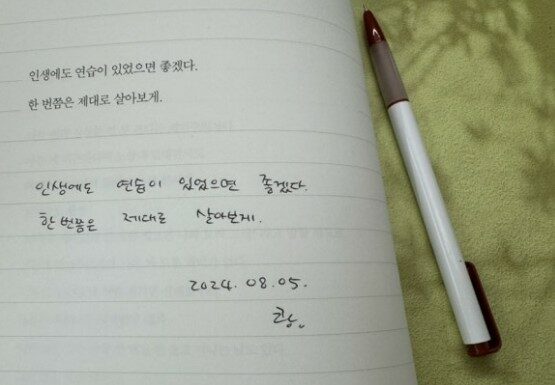 인생에도 연습이 있었으면 좋겠다.
한 번쯤은 제대로 살아보게.
인생에도 연습이 있었으면 좋겠다.
한 번쯤은 제대로 살아보게.
2024. 08. 05.